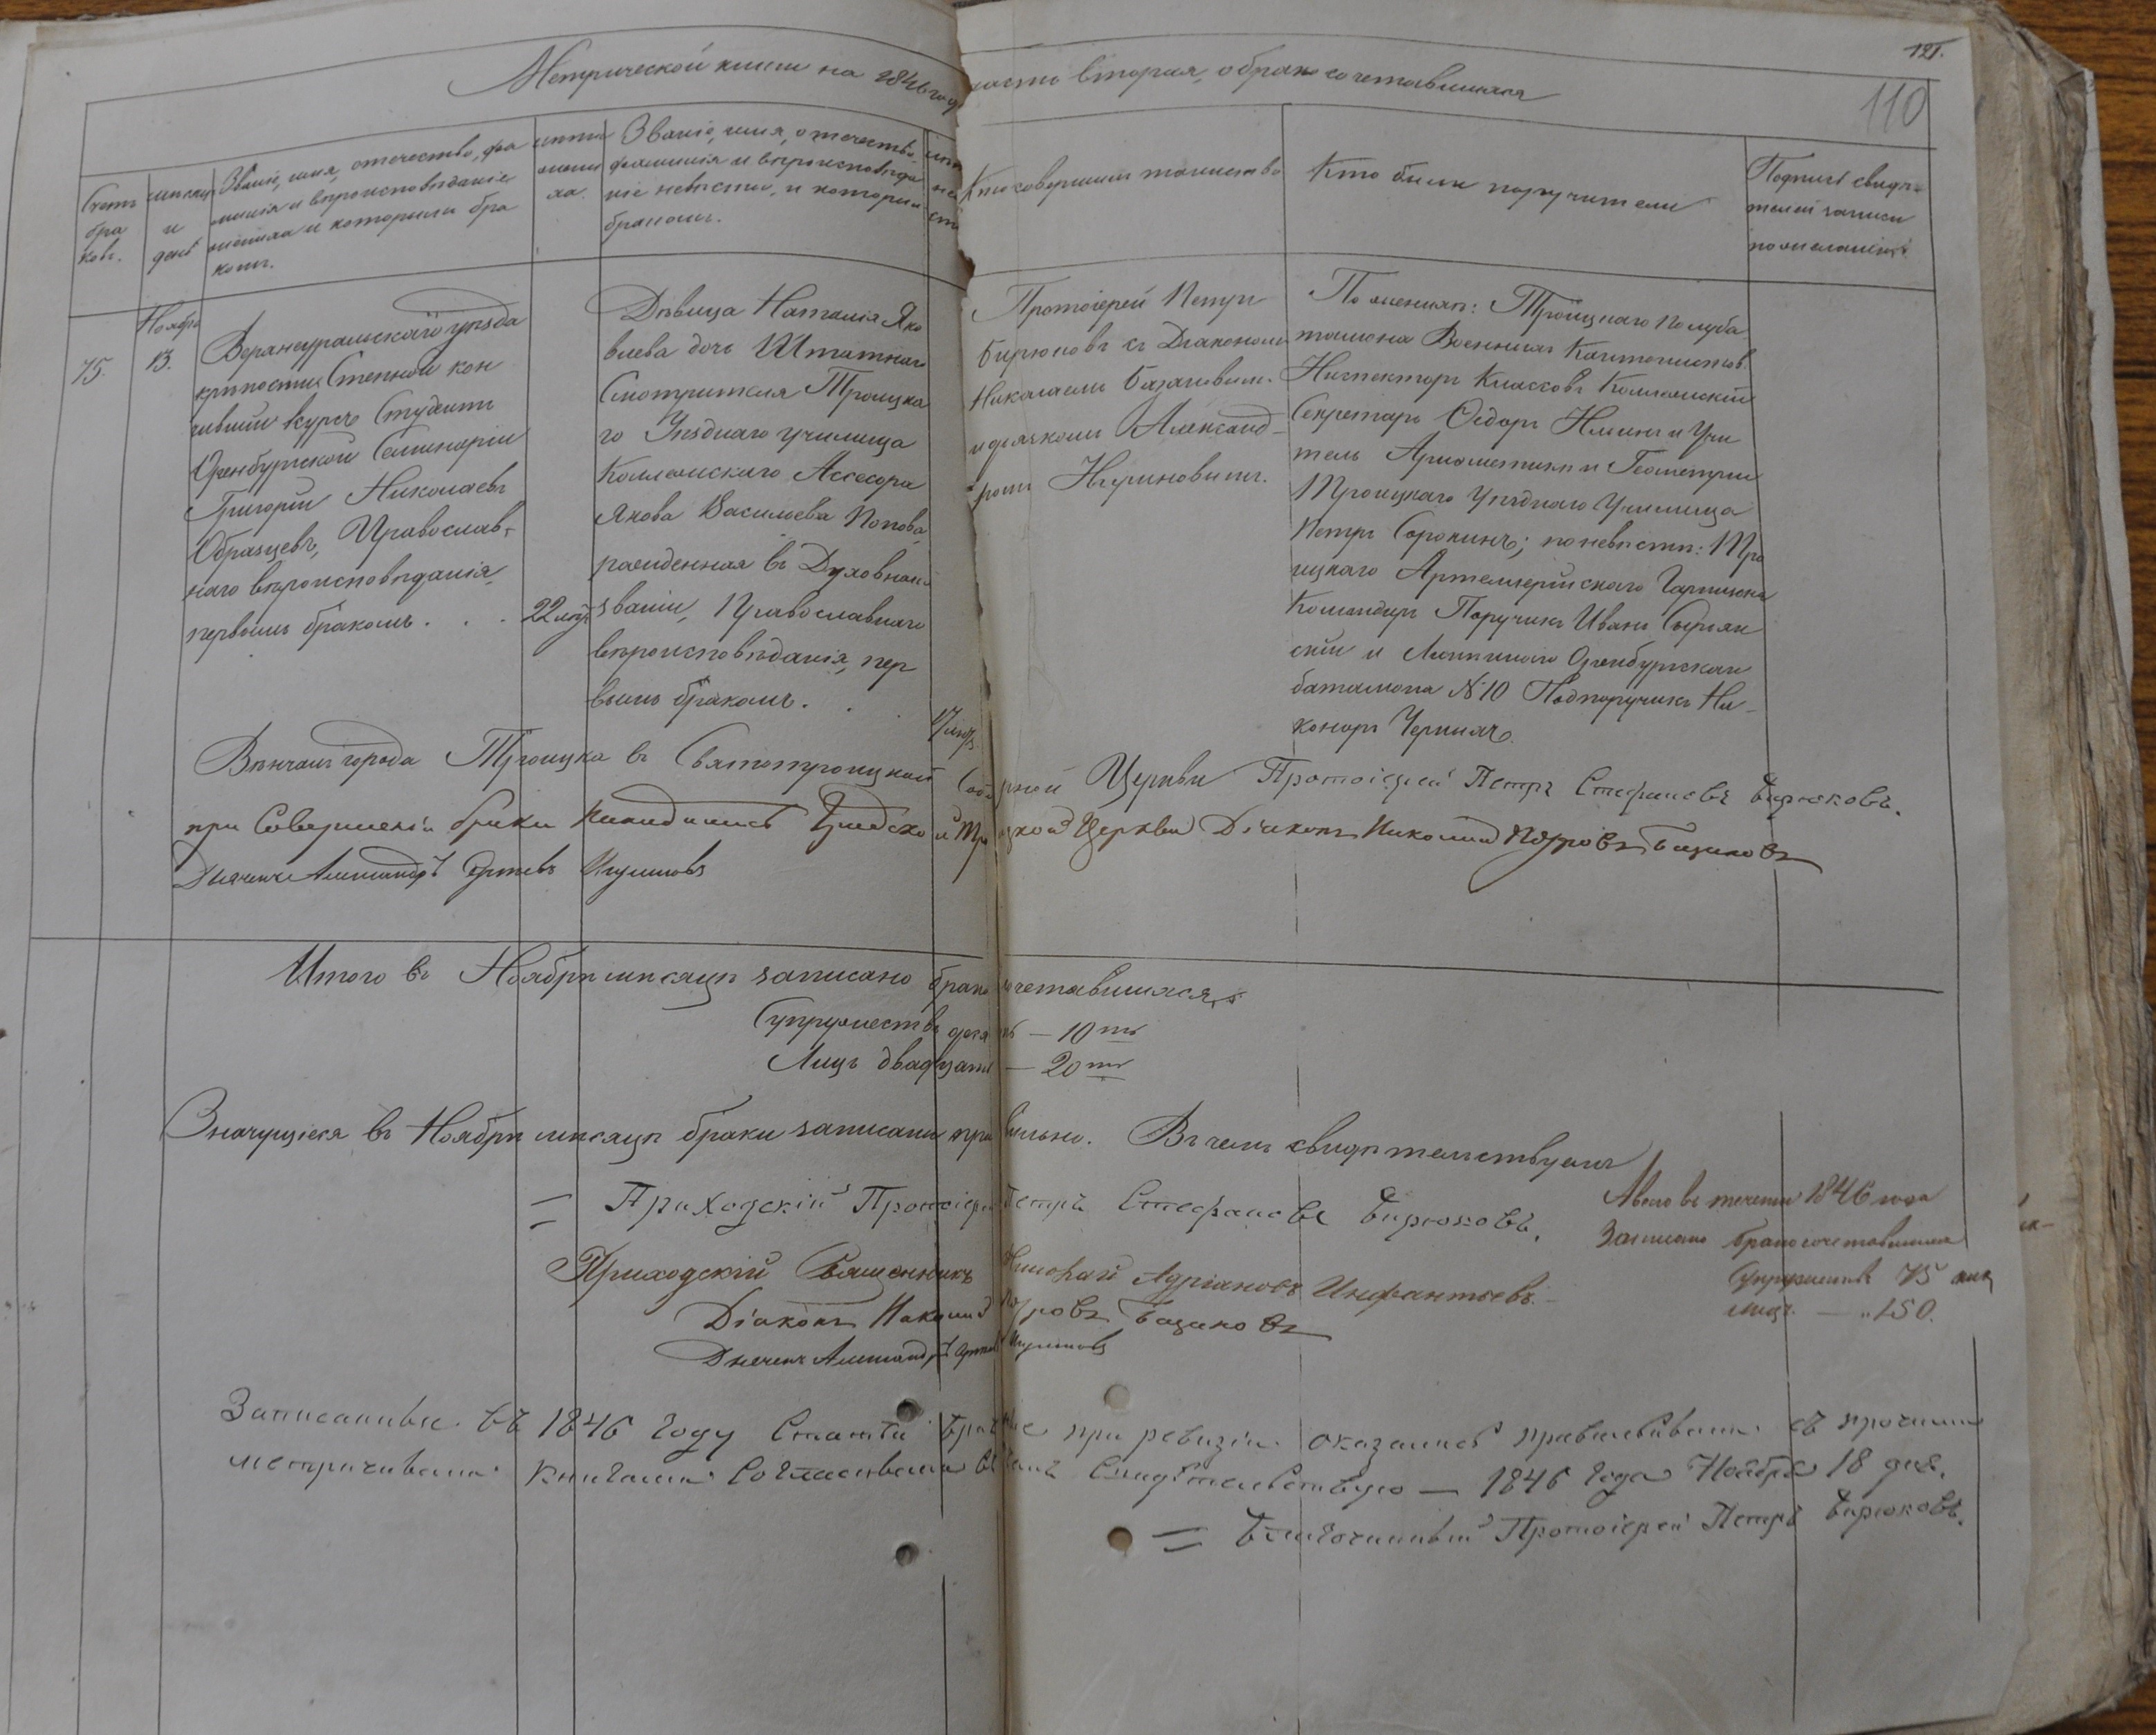 121.
110
Метрической книги на 1846 годъ часть вторая, о бракосочетавшихся
Счетъ
бра
ковъ.
мѣсяцъ
и
день
Званіе, имя, отечество, фа
милія и вѣроисповѣданіе
жениха и которымъ бра
комъ.
лѣта
жени
ха.
Званіе, имя, отечество,
фамилія и вѣроисповѣда
ніе невѣсты, и которымъ
бракомъ.
Кто совершилъ таинство
Кто были поручители
Подпись свидѣ-
телей записи
по желанію
75.
Ноябрь
13.
Верхнеуральскаго уѣзда
крѣпости Степной кон
чившій курсъ Студентъ
Оренбургской Семинаріи
Григорій Николаевъ
Образцевъ, Православ-
наго вѣроисповѣданія,
первымъ бракомъ . . .
22 лѣтъ
Дѣвица Наталія Яко
влева дочь Штатнаго
Смотрителя Троицка
го Уѣзднаго училища
Коллежскаго Ассесора
Якова Васильева Попова,
рожденная въ Духовномъ
званіи, Православнаго
вѣроисповѣданія, пер
вымъ бракомъ . .
17 лѣтъ
Протоіерей Петръ
Бирюковъ съ Діакономъ
Николаемъ Базановымъ
и дьячкомъ Александ-
ромъ Игуменовымъ.
По женихѣ: Троицкаго полуба
таліона Военныхъ Кантонистовъ
Инспекторъ Классовъ Коллежскій
Секретарь Ѳедоръ Ильинъ и Учи
тель Ариѳметики и Геометріи
Троицкаго Уѣзднаго Училища
Петръ Сорокинъ; по невѣстѣ: Тро
ицкаго Артиллерійскаго Гарнизона
Командиръ Поручикъ Иванъ
скій и Линейнаго Оренбургскаго
баталіона № 10 Подпоручикъ Ни-
каноръ Чернякъ.
Вѣнчалъ города Троицка въ Святотроицкой Соборной Церкви Протоіерей Петръ Стефановъ Бирюковъ.
при Совершеніи брака находились Градской Троицкой Церкви Діаконъ Николай Петровъ Базановъ
Дьячекъ Александръ Игуменовъ
Итого въ Ноябрѣ мѣсяцѣ записано бракосочетавшихся,
Супружествъ десять — 10ть
Лицъ двадцать — 20ть
Значущіеся въ Ноябрѣ мѣсяцѣ браки записаны правильно. Въ чемъ свидѣтельствуемъ
= Приходскій Протоіерей Петръ Стефановъ Бирюковъ.
Приходскій Священникъ Николай Адріановъ Инфантьевъ.
Діаконъ Николай Петровъ Базановъ
Дьячекъ Александръ Игуменовъ
А всего въ теченіи 1846 года
Записано бракосочетавшихся
Супружествъ 75
лицъ. — „ 150.
Записанные въ 1846 году Статьи брачные при ревизіи оказались правильными съ прочими
метричными книгами согласными въ чемъ Свидѣтельствую — 1846 года Ноября 18 дня.
= Благочинный Протоіерей Петръ Бирюковъ.